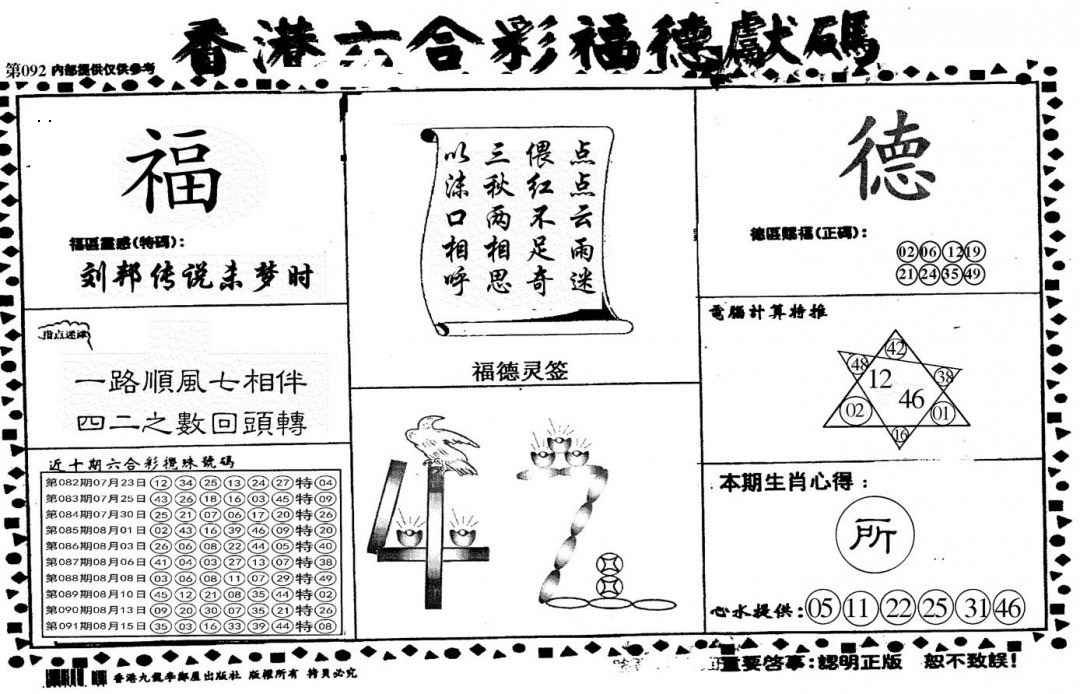 香港六合彩福德獻碼
第092 内部提供仅供参考
福
福區靈感(特碼)：
刘邦传说未梦时
指点迷津
一路順風七相伴
四二之數回頭轉
近十期六合彩攪珠號碼
第082期07月23日 12 34 25 13 24 27 特 04
第083期07月25日 43 26 18 16 03 45 特 09
第084期07月30日 25 21 07 06 17 20 特 26
第085期08月01日 02 43 16 39 46 09 特 20
第086期08月03日 26 06 08 22 44 05 特 40
第087期08月06日 41 04 03 27 13 07 特 38
第088期08月08日 03 06 08 11 07 29 特 49
第089期08月10日 45 12 21 08 35 44 特 02
第090期08月13日 09 20 30 07 35 21 特 26
第091期08月15日 35 03 16 33 39 44 特 08
点点云雨迷
偎红不足奇
三秋两相思
以沫口相呼
福德灵签
42
德
德區賜福(正碼)：
02 06 12 19
21 24 35 49
電腦計算特推
42
48 38
12
46
02 01
16
本期生肖心得：
所
心水提供：05 11 22 25 31 46
香港九龍李鄭屋出版社 版權所有 拷貝必究
重要啓事：認明正版 恕不致誤！